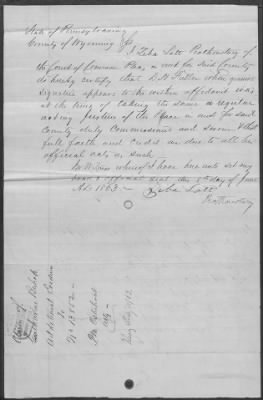 State of Pennsylvania
County of Wyoming ss
I Zeba Lott Prothonotary of
the Court of Common Pleas in and for said County
do hereby certify that D. D. whose genuine
signature appears to the within affidavit was
at the time of taking the same a regular
acting Justice of the Peace in and for said
County duly Commissioned and sworn that
full faith and credit are due to all his
official acts as such
In Witness whereof I have hereunto set my
hand & official seal the 8th day of June
A.D. 1863
Zeba Lott
Prothonotary
Claim of
Catharine
Additional Evidence
in
No 13852
Atty